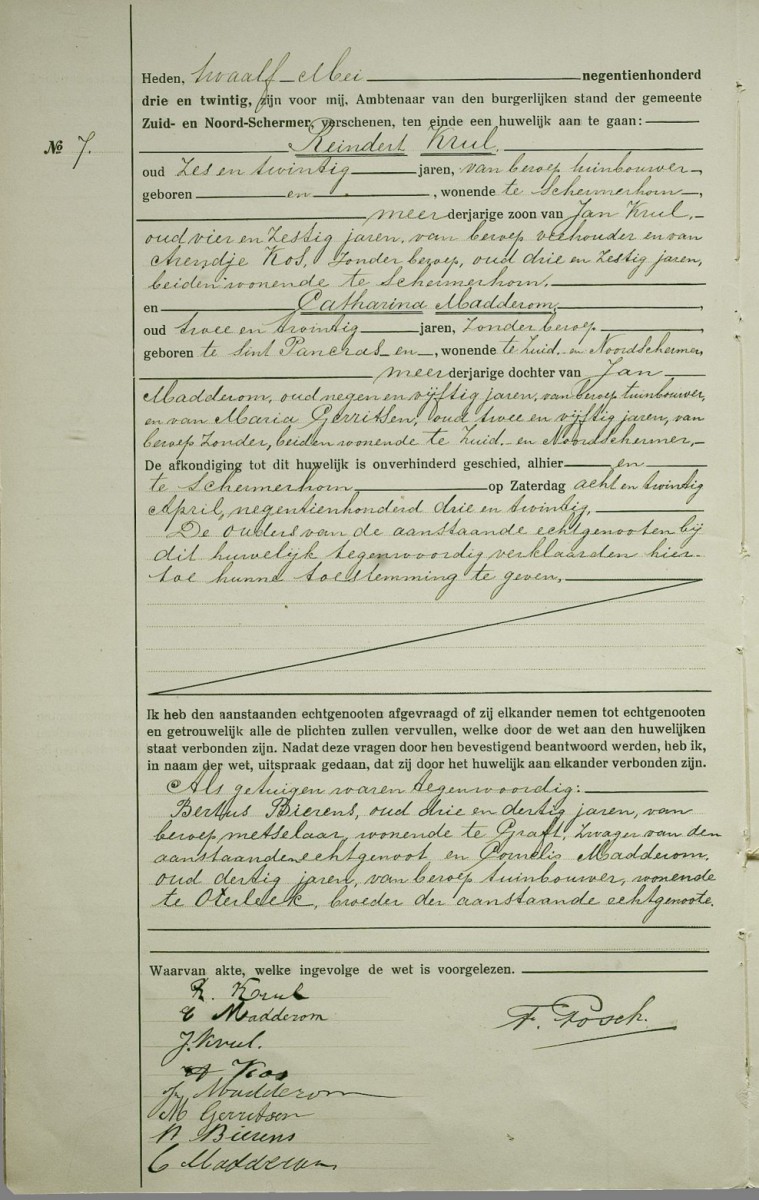 Heden, twaalf Mei negentienhonderd
drie en twintig, zijn voor mij, Ambtenaar van den burgerlijken stand der gemeente
Zuid- en Noord-Schermer, verschenen, ten einde een huwelijk aan te gaan:
№ 7.
Reindert Krul.
oud zes en twintig jaren, van beroep tuinbouwer,
geboren en , wonende te Schermerhorn,
meerderjarige zoon van Jan Krul,
oud vier en zestig jaren, van beroep veehouder en van
Arendje Kos, zonder beroep, oud drie en zestig jaren,
beiden wonende te Schermerhorn.
en Catharina Madderom,
oud twee en twintig jaren, zonder beroep,
geboren te Sint Pancras en , wonende te Zuid- en Noordschermer,
meerderjarige dochter van Jan
Madderom, oud negen en vijftig jaren, van beroep tuinbouwer,
en van Maria Gerritsen, oud twee en vijftig jaren, van
beroep zonder, beiden wonende te Zuid- en Noordschermer,
De afkondiging tot dit huwelijk is onverhinderd geschied, alhier en
te Schermerhorn op Zaterdag acht en twintig
April, negentienhonderd drie en twintig,
De ouders van de aanstaande echtgenooten bij
dit huwelijk tegenwoordig verklaarden hier-
toe hunne toestemming te geven,
Ik heb den aanstaanden echtgenooten afgevraagd of zij elkander nemen tot echtgenooten
en getrouwelijk alle de plichten zullen vervullen, welke door de wet aan den huwelijken
staat verbonden zijn. Nadat deze vragen door hen bevestigend beantwoord werden, heb ik,
in naam der wet, uitspraak gedaan, dat zij door het huwelijk aan elkander verbonden zijn.
Als getuigen waren tegenwoordig:
Bertus Bierens, oud drie en dertig jaren, van
beroep metselaar, wonende te Graft, zwager van den
aanstaanden echtgenoot en Cornelis Madderom,
oud dertig jaren, van beroep tuinbouwer, wonende
te Oterleek, broeder der aanstaande echtgenoote.
Waarvan akte, welke ingevolge de wet is voorgelezen.
R. Krul
C Madderom
F. Posch.
J. Krul.
A Kos
J. Madderom
M Gerritsen
B Bierens
C Madderom